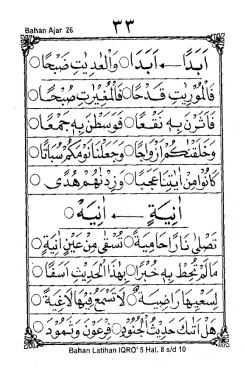 Bahan Ajar 26
٣٣
اَبَدًا ← اَبَدَا ○ وَالْعٰدِيٰتِ ضَبْحًا ○
فَالْمُوْرِيٰتِ قَدْحًا ○ فَالْمُغِيْرٰتِ صُبْحًا ○
فَاَثَرْنَ بِهٖ نَقْعًا ○ فَوَسَطْنَ بِهٖ جَمْعًا ○
وَخَلَقْنٰكُمْ اَزْوَاجًا ○ وَجَعَلْنَا نَوْمَكُمْ سُبَاتًا ○
كَانُوْا مِنْ اٰيٰتِنَا عَجَبًا ○ وَزِدْنٰهُمْ هُدًى ○
اٰنِيَةٍ ← اٰنِيَهْ ○
تَصْلٰى نَارًا حَامِيَةً ○ تُسْقٰى مِنْ عَيْنٍ اٰنِيَةٍ ○
مَالَمْ تُحِطْ بِهٖ خُبْرًا ○ بِهٰذَا الْحَدِيْثِ اَسَفًا ○
لِسَعْيِهَا رَاضِيَةٌ ○ لَا تَسْمَعُ فِيْهَا لَاغِيَةً ○
هَلْ اَتٰىكَ حَدِيْثُ الْجُنُوْدِ ○ فِرْعَوْنَ وَثَمُوْدَ ○
Bahan Latihan IQRO' 5 Hal. 8 s/d 10